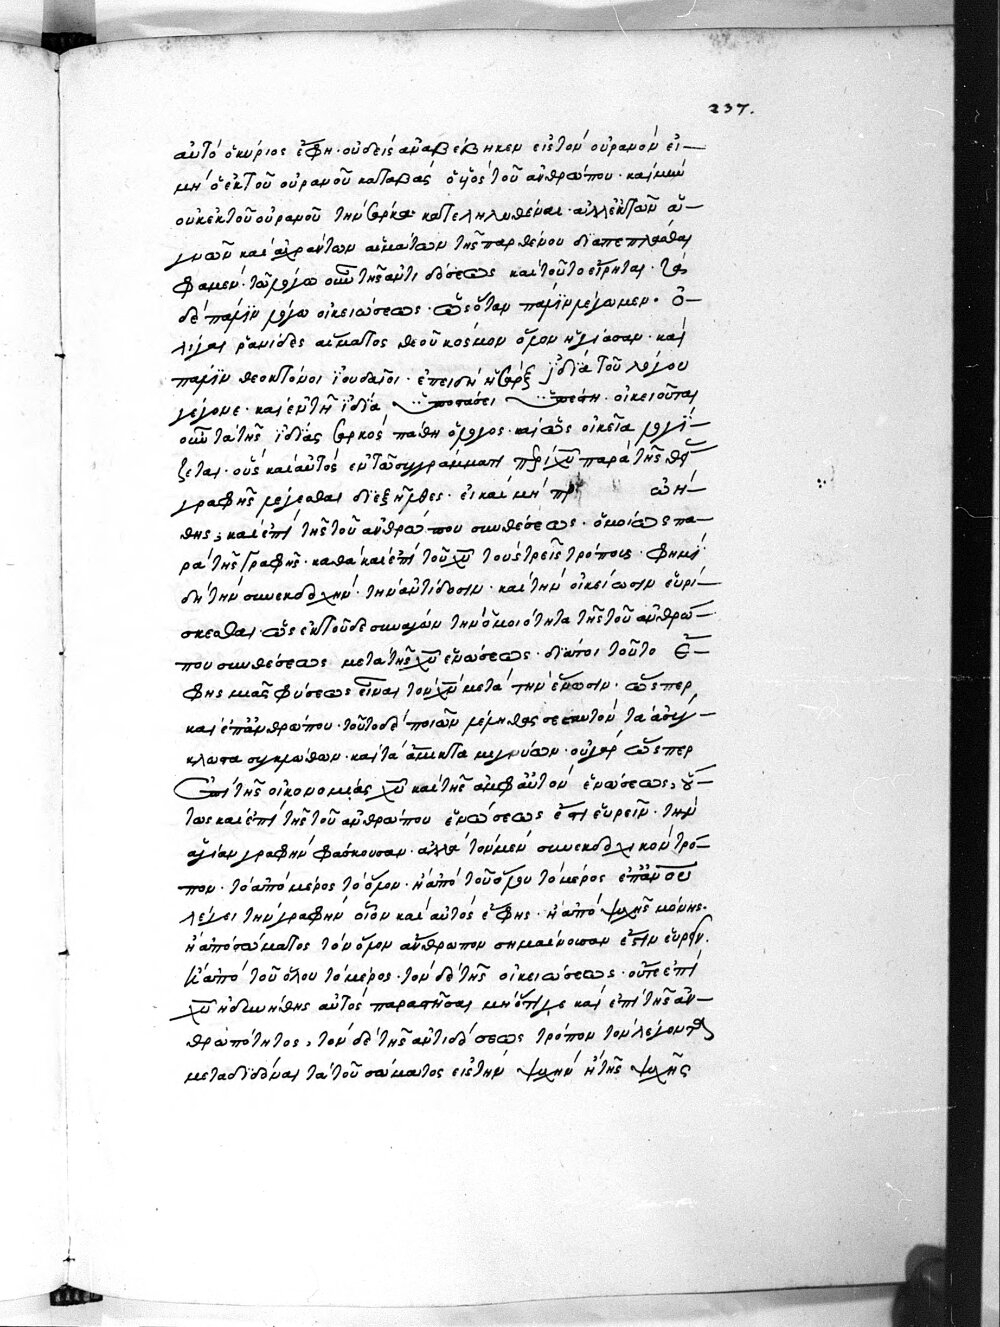 237.
αὐτό ὁ κύριος ἔφη· οὐδεὶς ἀναβέβηκεν εἰς τὸν οὐρανὸν εἰ
μὴ ὁ ἐκ τοῦ οὐρανοῦ καταβάς ὁ υἱὸς τοῦ ἀνθρώπου· καὶ μὴν
οὐκ ἐκ τοῦ οὐρανοῦ τὴν σάρκα κατεληλυθέναι· ἀλλ' ἐκ τῶν ἁ-
γνῶν καὶ ἀχράντων αἱμάτων τῆς παρθένου διαπεπλάσθαι
φαμέν· τῷ λόγῳ οὖν τῆς ἀντιδόσεως καὶ τοῦτο εἴρηται· τῷ
δὲ πάλιν λόγῳ οἰκειώσεως· ὡς ὅταν πάλιν λέγωμεν· ὀ-
λίγαι ῥανίδες αἵματος θεοῦ κόσμον ὅλον ἡγίασαν· καὶ
πάλιν θεοκτόνοι ἰουδαῖοι· ἐπειδὴ ἡ σάρξ ἰδία τοῦ λόγου
γέγονε· καὶ ἐν τῇ ἰδίᾳ ὑποστάσει ὑπέστη· οἰκειοῦται
οὖν τὰ τῆς ἰδίας σαρκὸς πάθη ὁ λόγος· καὶ ὡς οἰκεῖα λογί-
ζεται· οὓς καὶ αὐτὸς ἐν τῷ συγράμματι περὶ χυ παρὰ τῆς θείας
γραφῆς λέγεσθαι διεξῆλθες· εἰ καὶ μὴ
πης; καὶ ἐπὶ τῆς τοῦ ἀνθρώπου συνθέσεως· ὁμοίως πα-
ρὰ τῆς γραφῆς· καθὰ καὶ ἐπὶ τοῦ χυ τοὺς τρεῖς τρόπους· φημὶ
δὴ τὴν συνεκδοχήν· τὴν ἀντίδοσιν· καὶ τὴν οἰκείωσιν εὑρί-
σκεσθαι· ὡς ἐκ τοῦδε συνάγων τὴν ὁμοιότητα τῆς τοῦ ἀνθρώ-
που συνθέσεως μετὰ τῆς χυ ἑνώσεως· διά τοι τοῦτο ἔ-
φης μιᾶς φύσεως εἶναι τὸν χν μετὰ τὴν ἕνωσιν· ὥσπερ
καὶ ἐπ' ἀνθρώπου· τοῦτο δὲ ποιῶν λέληθας σεαυτὸν τὰ ἀσύγ-
κλωστα συγκλώθων· καὶ τὰ ἄμικτα μιγνύων· οὐ γὰρ ὥσπερ
ἐπὶ τῆς οἰκονομίας χυ καὶ τῆς ἀμφ' αὐτὸν ἑνώσεως, οὕ-
τως καὶ ἐπὶ τῆς τοῦ ἀνθρώπου ἑνώσεως ἔστι εὑρεῖν· τὴν
ἁγίαν γραφὴν φάσκουσαν· ἀλλὰ τὸν μὲν συνεκδοχικὸν τρό-
πον· τὸ ἀπὸ μέρος τὸ ὅλον· ἢ ἀπὸ τοῦ ὅλου τὸ μέρος
λέγει τὴν γραφήν οἷον καὶ αὐτὸς ἔφης· ἢ ἀπὸ ψυχῆς μόνης·
ἢ ἀπὸ σώματος τὸν ὅλον ἄνθρωπον σημαίνουσαν ἔστιν εὑρεῖν·
ἢ ἀπὸ τοῦ ὅλου τὸ μέρος· τὸν δὲ τῆς οἰκειώσεως· οὔτε ἐπὶ
χυ ἠδυνήθης αὐτὸς παραστῆσαι μήτιγε καὶ ἐπὶ τῆς ἀν-
θρωπότητος, τὸν δὲ τῆς ἀντιδόσεως τρόπον τὸν λέγοντα
μεταδιδόναι τὰ τοῦ σώματος εἰς τὴν ψυχὴν ἢ τῆς ψυχῆς